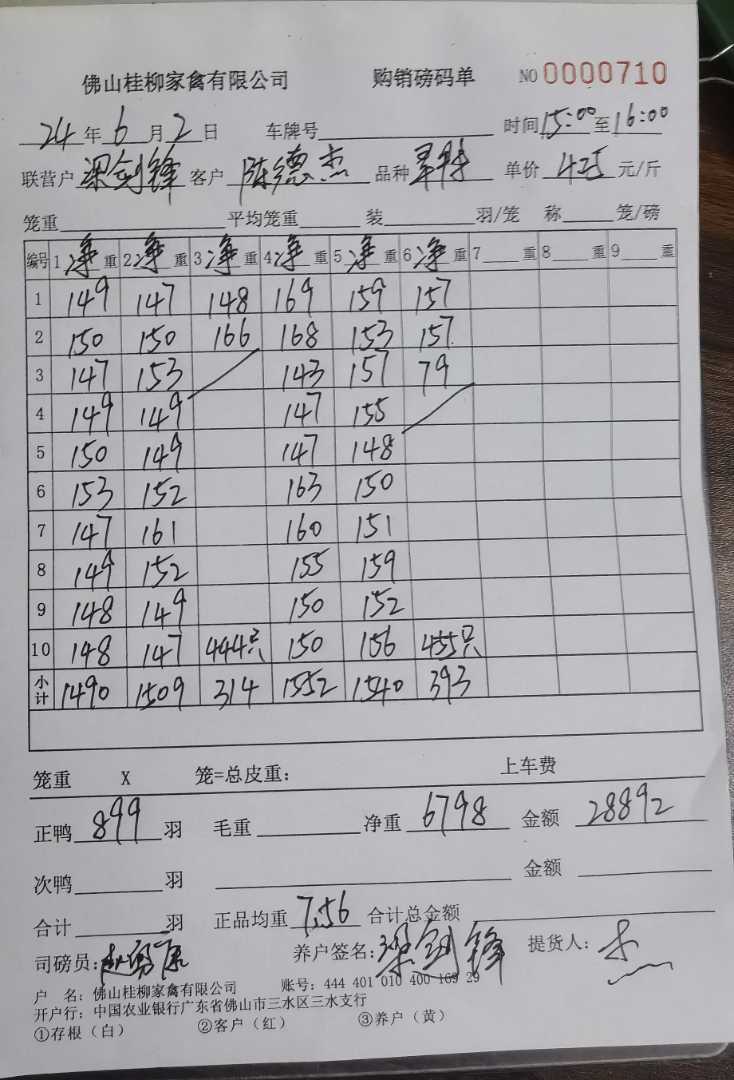 佛山桂柳家禽有限公司 购销磅码单 NO 0000710
24年6月2日 车牌号 时间15:00至16:00
联营户 梁剑锋 客户 陈德杰 品种 单价 425 元/斤
笼重 平均笼重 装 羽/笼 称 笼/磅
编号 1净重 2净重 3净重 4净重 5净重 6净重 7重 8重 9重
1 149 147 148 169 159 157
2 150 150 166 168 153 157
3 147 153 143 157 79
4 149 149 147 155
5 150 149 147 148
6 153 152 163 150
7 147 161 160 151
8 149 152 155 159
9 148 149 150 152
10 148 147 444只 150 156 455只
小计 1490 1509 314 1552 1540 393
笼重 X 笼=总皮重: 上车费
正鸭 899 羽 毛重 净重 6798 金额 28892
次鸭 羽 金额
合计 羽 正品均重 7.56 合计总金额
司磅员: 养户签名:梁剑锋 提货人: 杰
户 名: 佛山桂柳家禽有限公司 账号: 444 401 010 400 169 29
开户行: 中国农业银行广东省佛山市三水区三水支行
①存根(白) ②客户(红) ③养户(黄)